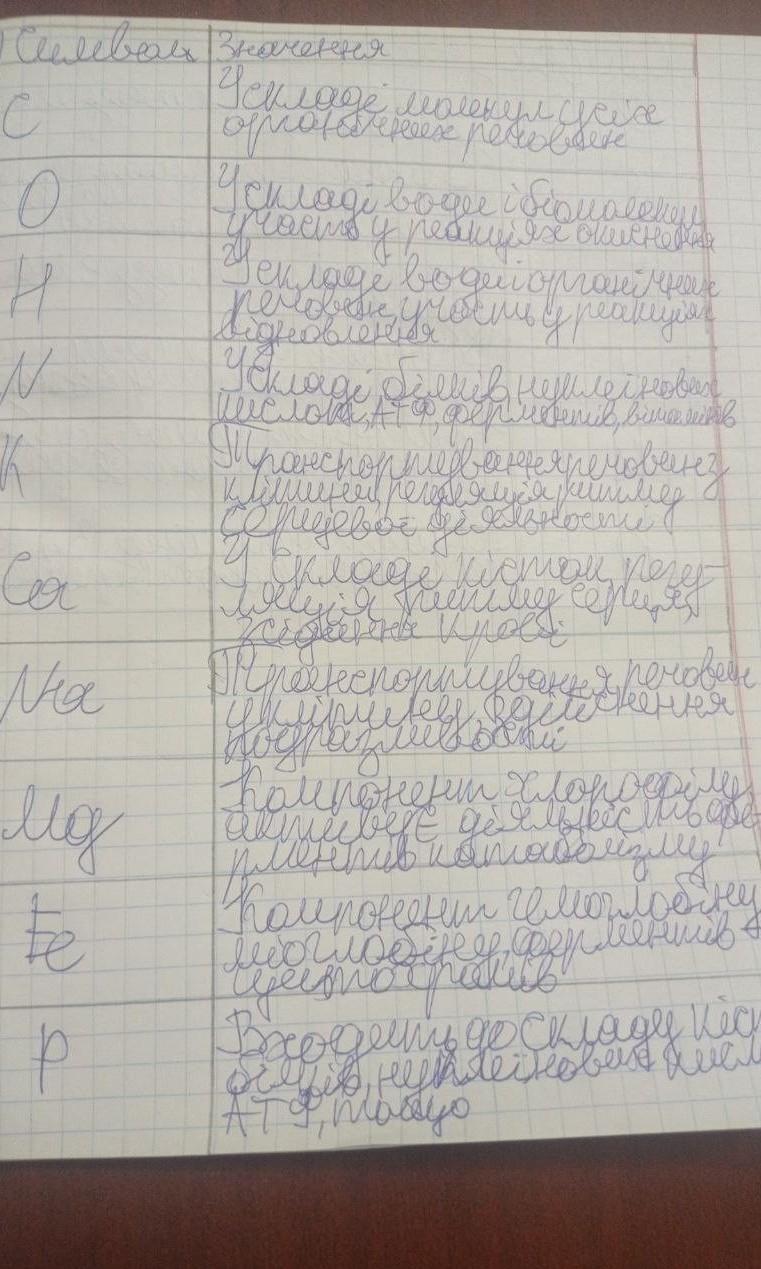 Символ Значення
C
У складі молекул усіх
органічних речовин
O
У складі води і біомолекул
участь у реакціях окиснення
H
У складі води і органічних
речовин, участь у реакціях
відновлення
N
У складі білків, нуклеїнових
кислот, АТФ, ферментів, вітамінів
K
Транспортування речовин з
клітини, регуляція ритму
серцевої діяльності
Ca
У складі кісток, регу-
ляція ритму серця,
зсідання крові
Na
Транспортування речовин
у клітину, здійснення
подразливості
Mg
Компонент хлорофілу,
активує діяльність фе-
рментів катаболізму
Fe
Компонент гемоглобіну
міоглобіну, ферментів
цитохромів
P
Входить до складу кіс
білків, нуклеїнових кисл
АТФ, тощо